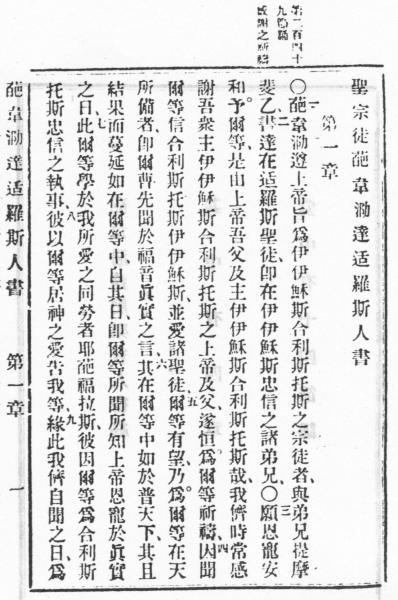 第二百四十
九篇屬
感謝之祈禱
聖宗徒葩韋泐達适羅斯人書
第一章
○一葩韋泐遵上帝旨爲伊伊穌斯合利斯托斯之宗徒者、與弟兄提摩
斐乙、二書達在适羅斯聖徒、卽在伊伊穌斯忠信之諸弟兄、○三願恩寵安
和予爾等、是由上帝吾父及主伊伊穌斯合利斯托斯哉、我儕時常感
謝吾衆主伊伊穌斯合利斯托斯之上帝及父、遂恒爲爾等祈禱、四因聞
爾等信合利斯托斯伊伊穌斯、並愛諸聖徒、五爾等有望、乃爲爾等在天
所備者、卽爾曹先聞於福音眞實之言、六其在爾等中、如於普天下、其且
結果而蔓延、如在爾等中、自其日、卽爾等所聞所知上帝恩寵於眞實
之日、七此爾等學於我所愛之同勞者耶葩福拉斯、彼因爾等爲合利斯
托斯忠信之執事、八彼以爾等居神之愛告我等、九緣此我儕自聞之日、爲
葩韋泐達适羅斯人書 第一章 一